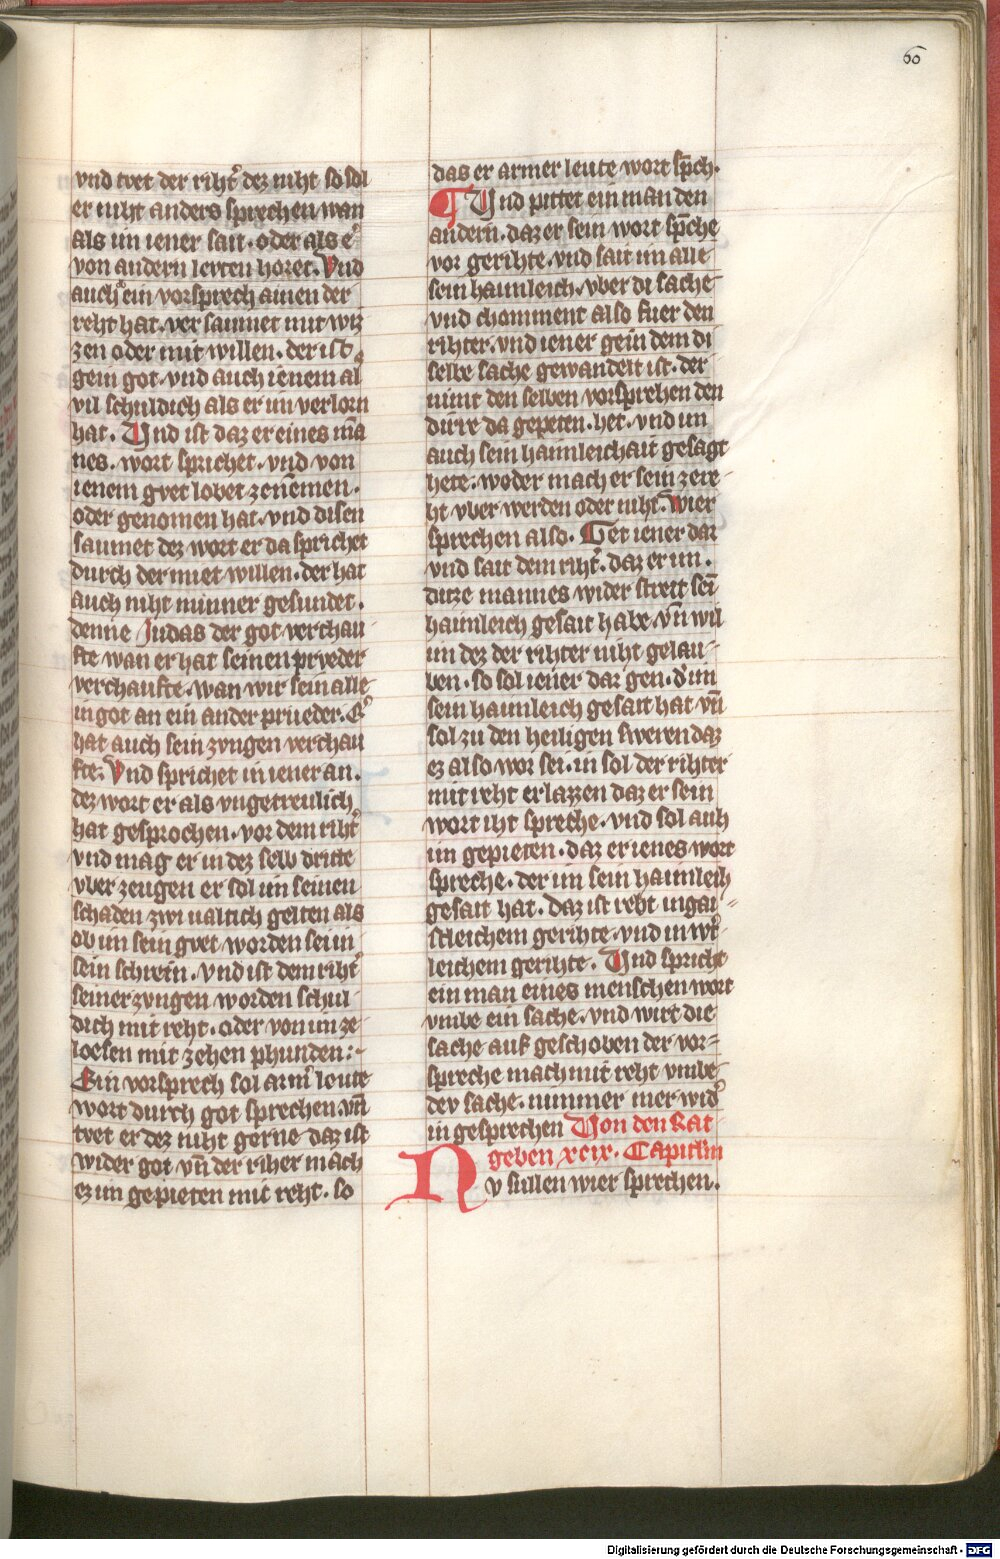 66
vnd tvet der riht͛ dez niht so sol
er niht anders sprechen wan
als im iener sait · oder als e͛
von andern levten horet · Vnd
auch ein vorsprech ainen der
reht hat · ver saumet mit wiz
zen oder mit willen · der ist
gein got · vnd auch ienem al
vil schuldich als er im verlorn
hat · Vnd ist daz er eines ma̅
nes · wort sprichet · vnd von
ienem gvet lobet zene̅men ·
oder genomen hat · vnd disen
saumet dez wort er da sprichet
durch der miet willen · der hat
auch niht minner gesundet ·
denne Judas der got verchau
fte wan er hat seinen prveder
verchaufte · wan wir sein alle
in got an ein ander prueder · E͛
hat auch sein zvngen verchau
fte · Vnd sprichet in iener an ·
dez wort er als vngetreulich
hat gesprochen · vor dem riht͛
vnd mag er in dez selb dritte
vber zeugen er sol im seinen
schaden zwi ualtich gelten als
ob im sein gvet worden sei in
sein schrein · vnd ist dem riht͛
seiner zvngen worden schul
dich mit reht · oder von im ze
loesen mit zehen phunden :~
Ein vorsprech sol arm͛ leute
wort durch got sprechen · vn̅
tvet er dez niht gerne daz ist
wider got vn̅ der riher mach
ez im gepieten mit reht · so
das er armer leute wort sp̅ch ·
¶ Vnd pittet ein man den
andern · daz er sein wort sp̅che
vor gerihte · vnd sait im alle
sein haimleich · vber di sache
vnd choment also fuer den
rihter · vnd iener gein dem di
selbe sache gewandelt ist · der
nimt den selben vorsprehen den
dirre da gepeten · het · vnd im
auch sein haimleichait gesagt
hete · woder mach er sein ze re
ht vber werden oder niht · Wier
sprechen also · Get iener dar
vnd sait dem riht͛ · daz er im ·
ditze mannes wider streit sei̅
haimleich gesait habe · vn̅ wil
im dez der rihter niht gelau
ben · so sol iener dar gen · d͛ im
sein haimleich gesait hat vn̅
sol zu den heiligen sweren daz
ez also wor sei · in sol der rihter
mit reht erlazzen daz er sein
wort iht spreche · vnd sol auh
im gepieten · daz er ienes wort
spreche · der im sein haimleih
gesait hat · daz ist reht in gai
stleichem gerihte · vnd in w͛t
leichem gerihte · Vnd spricht
ein man eines menschen wort
vmbe ein sache · vnd wirt die
sache auf geschoben der vor=
spreche mach mit reht vmbe
dev sache · nimmer mer wid͛
in gesprechen Von den Rat
geben xcix · Capitl̅m
Nv sullen wier sprechen ·
Digitalisierung gefördert durch die Deutsche Forschungsgemeinschaft - DFG